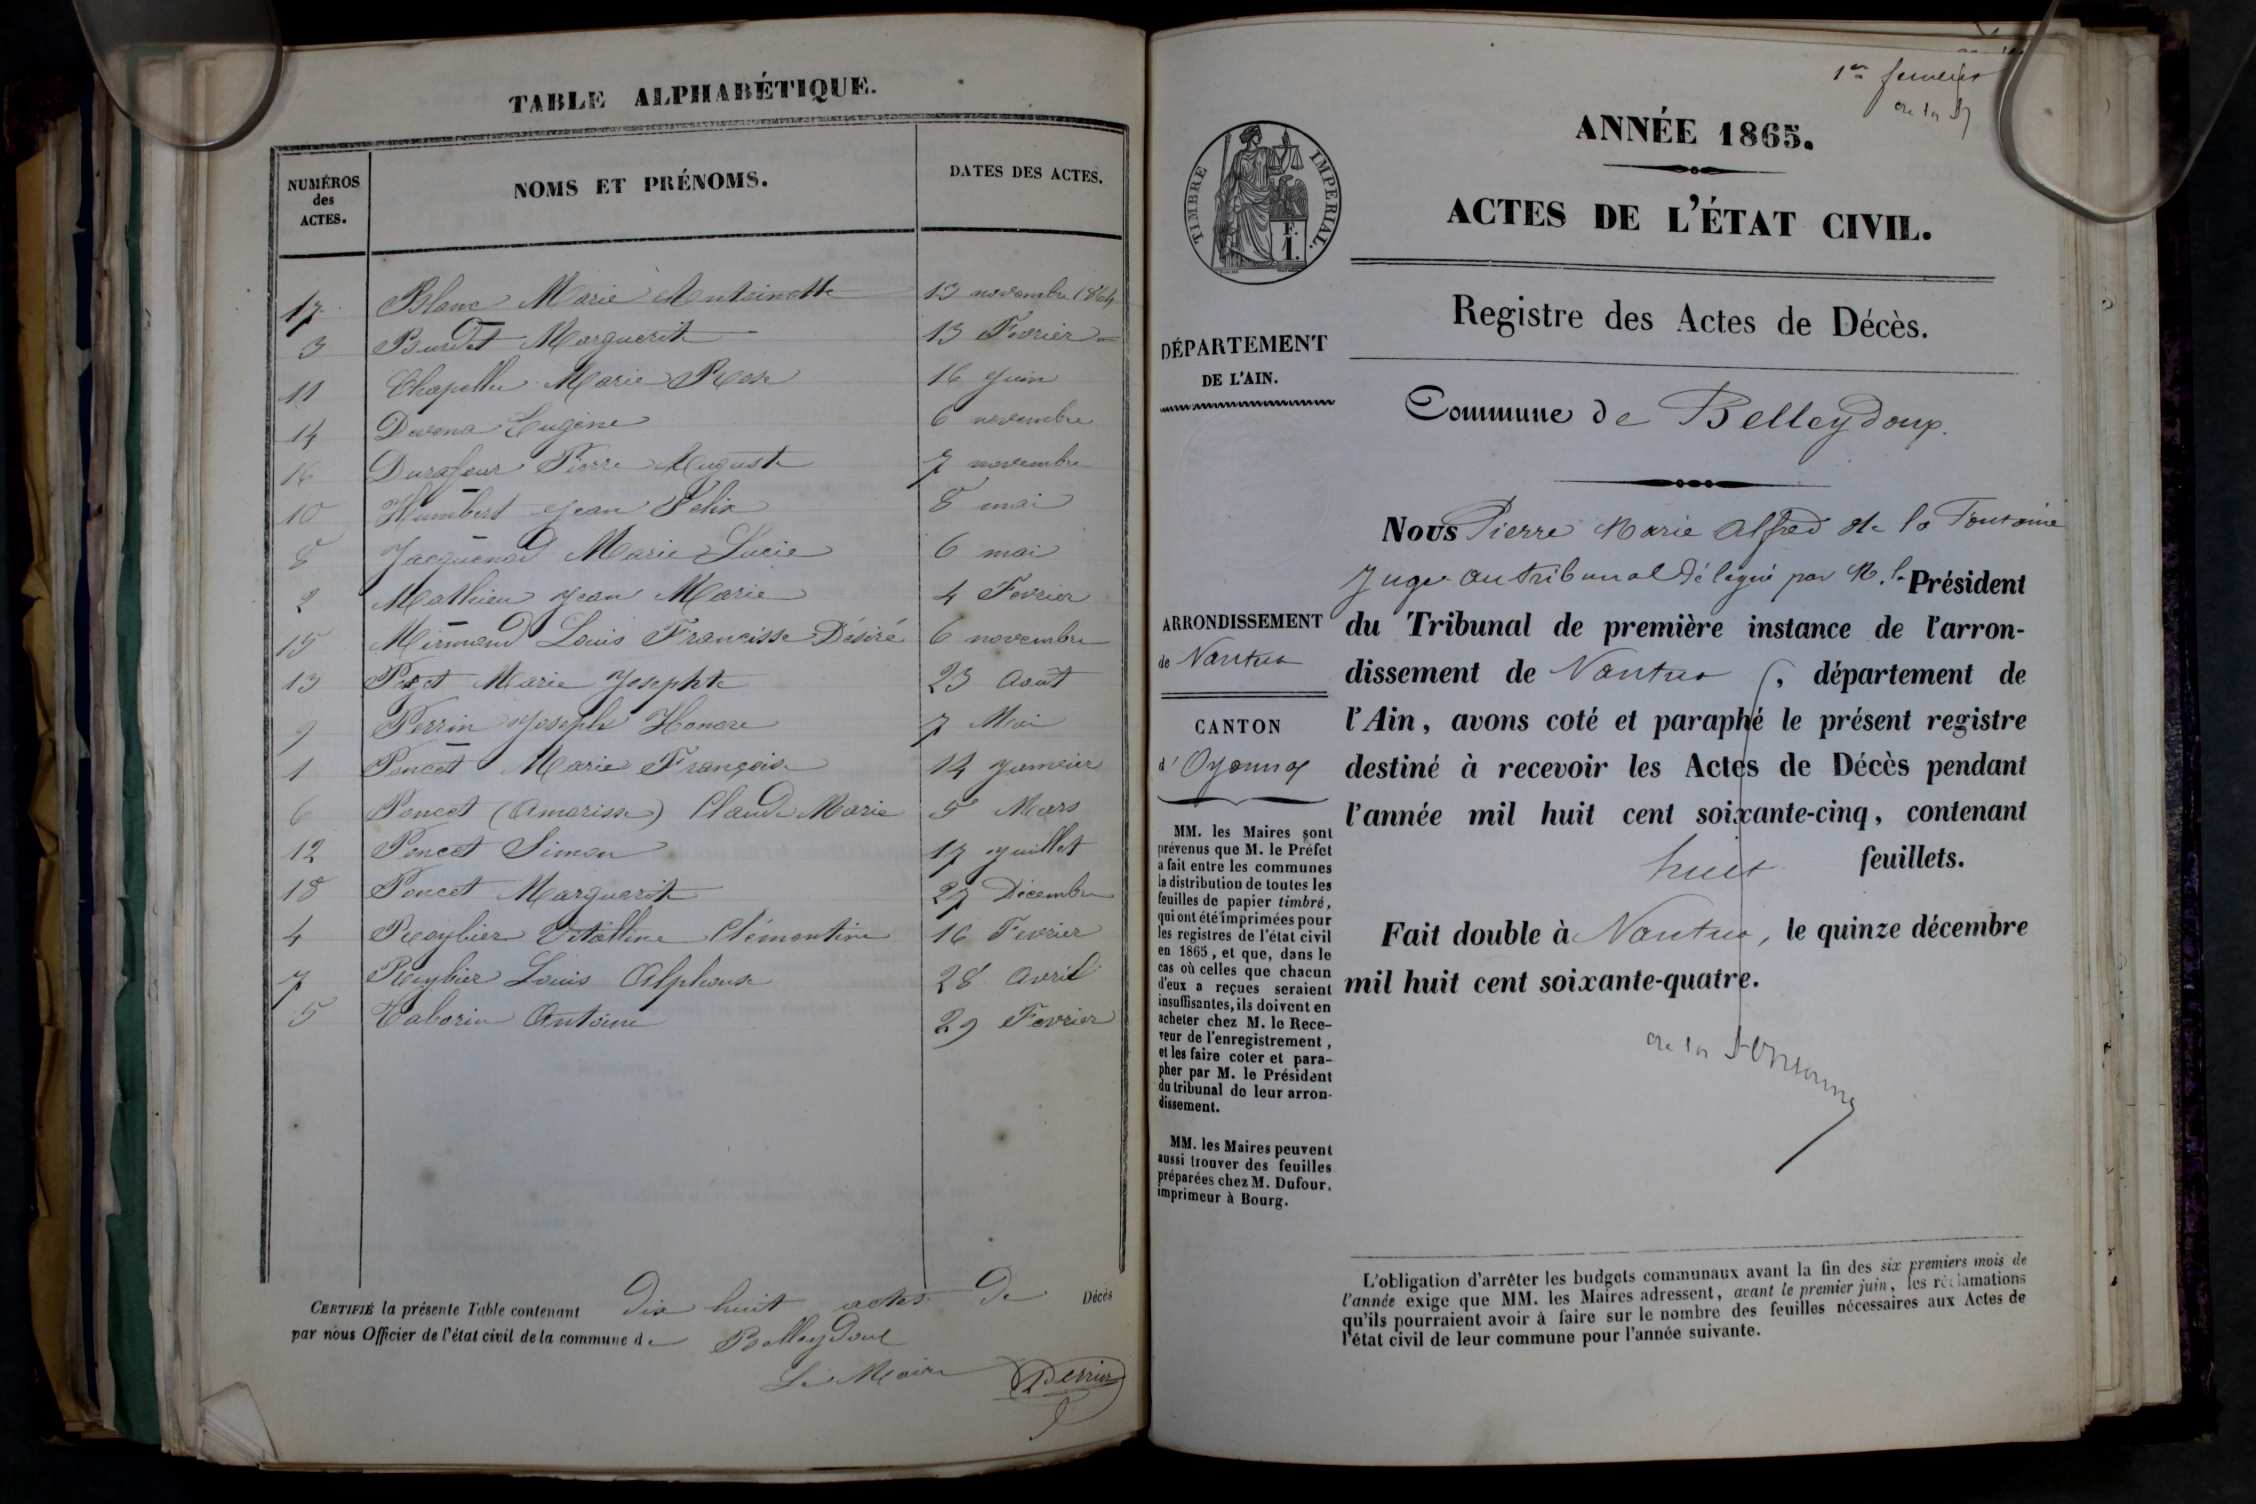 TABLE ALPHABÉTIQUE.
NUMÉROS des ACTES. NOMS ET PRÉNOMS. DATES DES ACTES.
17 Blanc Marie Antoinette 13 novembre 1864
3 Burdet Marguerite 13 Fevrier
11 Chapelle Marie Rose 16 juin
14 Devona Eugène 6 novembre
16 Durafour Pierre Auguste 7 novembre
10 Humbert Jean Felix 8 mai
8 Jacquenod Marie Lucie 6 mai
2 Mathieu Jean Marie 4 Fevrier
15 Mermand Louis Francisse Désiré 6 novembre
13 Marie Josephte 23 Août
9 Perrin Joseph Honore 7 Mai
1 Poncet Marie Françoise 14 janvier
6 Poncet (Amarisse) Claude Marie 5 Mars
12 Poncet Simon 17 juillet
18 Poncet Marguerite 27 Décembre
4 Reybier Vitalline Clémentine 16 Fevrier
7 Reybier Louis Alphonse 28 avril
5 Taborin Antoine 29 Fevrier
CERTIFIÉ la présente Table contenant dix huit actes de Décès
par nous Officier de l'état civil de la commune de Belleydoux
Le Maire Perrin
1er feuillet
de la F
ANNÉE 1865.
ACTES DE L'ÉTAT CIVIL.
TIMBRE IMPERIAL.
F.
1.
Registre des Actes de Décès.
DÉPARTEMENT
DE L'AIN.
Commune de Belleydoux.
Nous Pierre Marie Alfred de la Fontaine
Juge au tribunal délégué par M. le Président
du Tribunal de première instance de l'arron-
dissement de Nantua, département de
l'Ain, avons coté et paraphé le présent registre
destiné à recevoir les Actes de Décès pendant
l'année mil huit cent soixante-cinq, contenant
huit feuillets.
Fait double à Nantua, le quinze décembre
mil huit cent soixante-quatre.
de la Fontaine
ARRONDISSEMENT
de Nantua
CANTON
d'Oyonnax
MM. les Maires sont
prévenus que M. le Préfet
a fait entre les communes
la distribution de toutes les
feuilles de papier timbré,
qui ont été imprimées pour
les registres de l'état civil
en 1865, et que, dans le
cas où celles que chacun
d'eux a reçues seraient
insuffisantes, ils doivent en
acheter chez M. le Rece-
veur de l'enregistrement,
et les faire coter et para-
pher par M. le Président
du tribunal de leur arron-
dissement.
MM. les Maires peuvent
aussi trouver des feuilles
préparées chez M. Dufour,
imprimeur à Bourg.
L'obligation d'arrêter les budgets communaux avant la fin des six premiers mois de
l'année exige que MM. les Maires adressent, avant le premier juin, les réclamations
qu'ils pourraient avoir à faire sur le nombre des feuilles nécessaires aux Actes de
l'état civil de leur commune pour l'année suivante.